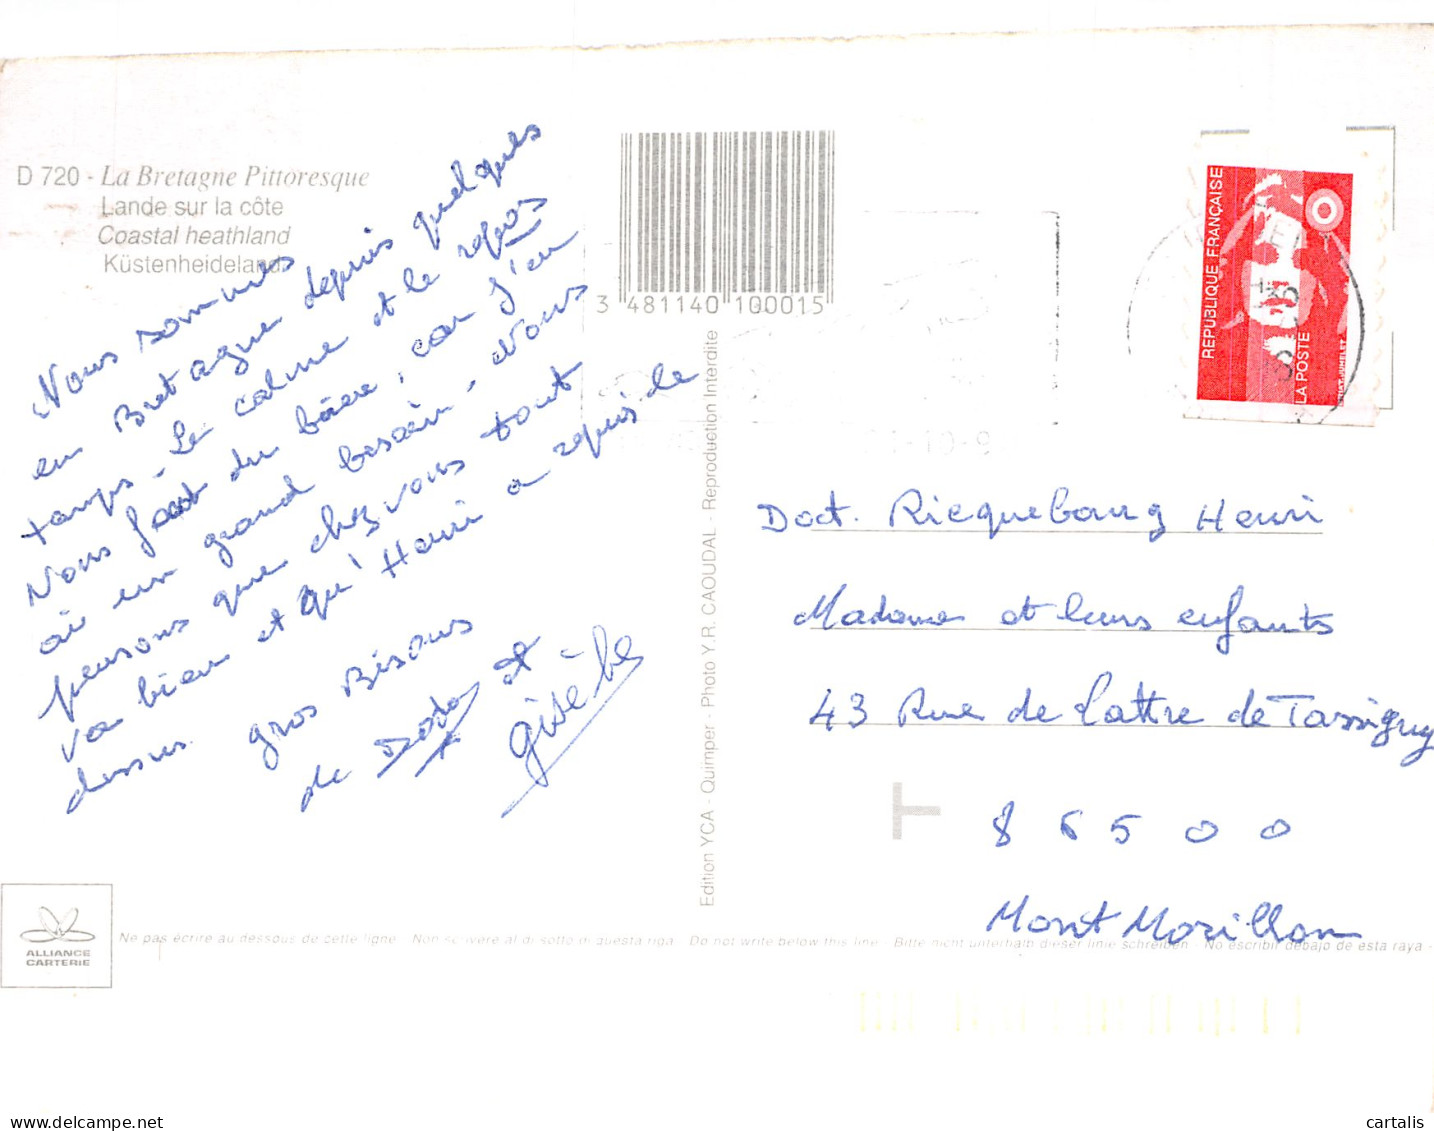 D 720 - La Bretagne Pittoresque
Lande sur la côte
Coastal heathland
Küstenheideland
Nous sommes
en Bretagne depuis quelques
temps - Le calme et le repos
Nous font du bien, car J'en
ai un grand besoin - Nous
pensons que chez vous tout
va bien et qu'Henri a repris le
dessus. gros Bisous
de Dodo et
Gisèle
3 481140 100015
Edition YCA - Quimper - Photo Y.R. CAOUDAL - Reproduction Interdite
REPUBLIQUE FRANÇAISE
LA POSTE
Doct. Ricquebourg Henri
Madame et leurs enfants
43 Rue de Lattre de Tassigny
T
86500
Mont Morillon
ALLIANCE
CARTERIE
Ne pas écrire au dessous de cette ligne - Non scrivere al di sotto di questa riga - Do not write below this line - Bitte nicht unterhalb dieser linie schreiben - No escribir debajo de esta raya -
cartalis